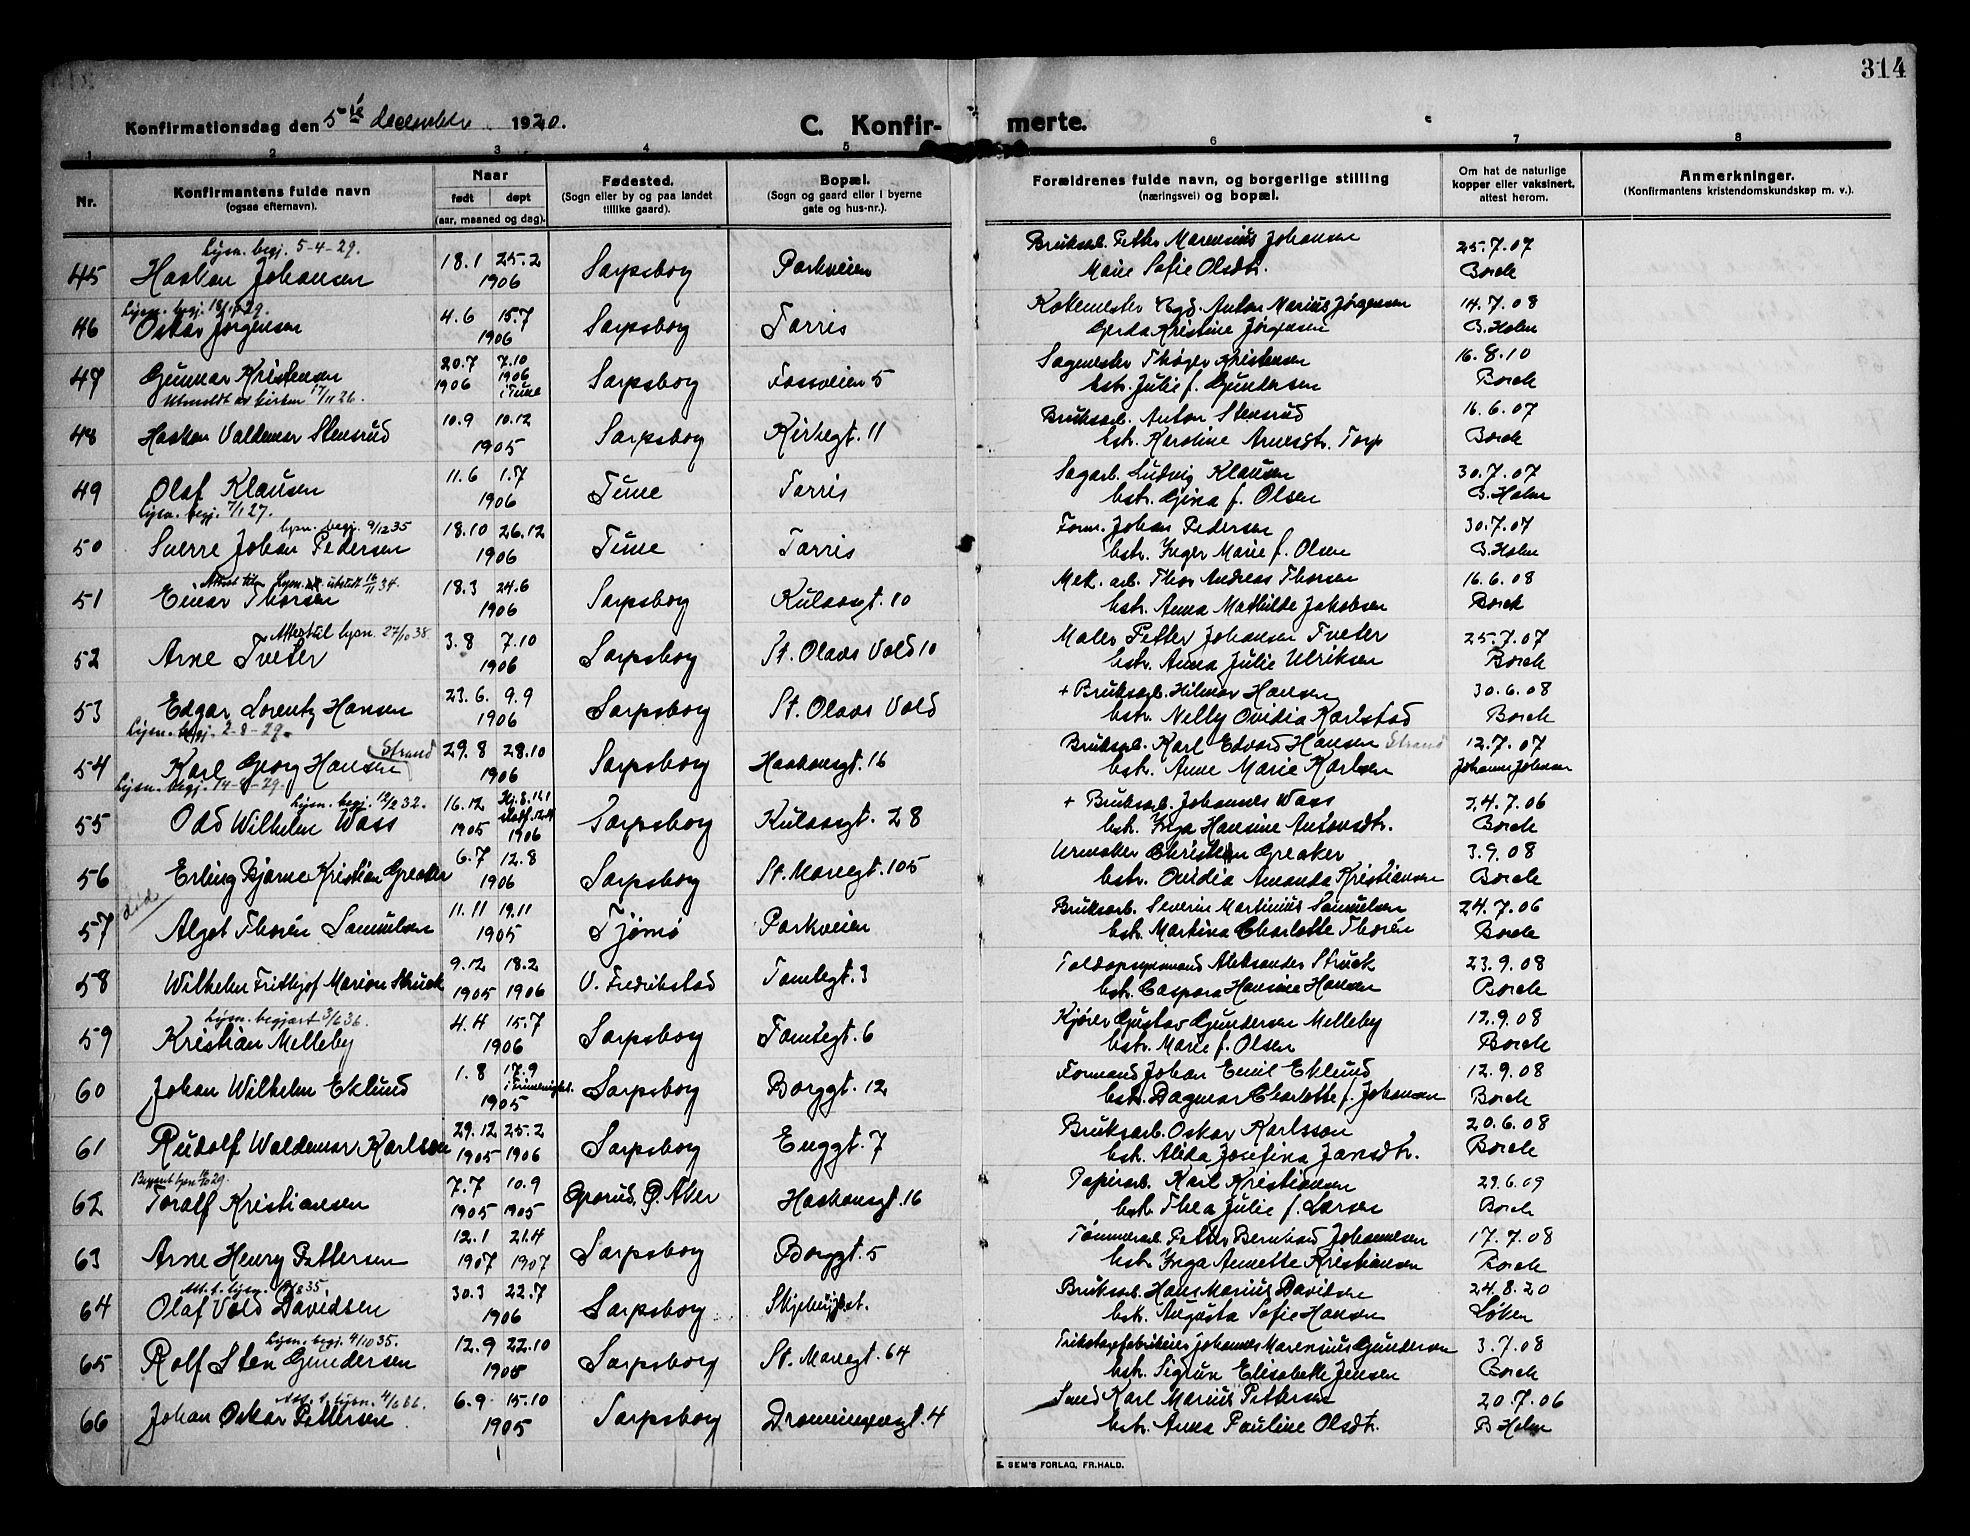 314
Konfirmationsdag den 5te december 1920.
C. Konfir- merte.
1 2 3 4 5 6 7 8
Nr.
Konfirmantens fulde navn
(ogsaa efternavn).
Naar
født døpt
(aar, maaned og dag).
Fødested.
(Sogn eller by og paa landet
tillike gaard).
Bopæl.
(Sogn og gaard eller i byerne
gate og hus-nr.).
Forældrenes fulde navn, og borgerlige stilling
(næringsvei) og bopæl.
Om hat de naturlige
kopper eller vaksinert,
attest herom.
Anmerkninger.
(Konfirmantens kristendomskundskap m. v.).
Lysn. begj. 5-4-29.
45 Haakon Johansen 18.1 25.2 1906 Sarpsborg Parkveien
Bruksarb. Petter Marensius Johansen 25.7.07
Marie Sofie Olsdtr. Borch
Lysn. begj.
46 Oskar Jørgensen 4.6 15.7 1906 Sarpsborg Tarris
Anton Marius Jørgensen 14.7.08
Gerda Kristine Jørgensen B. Holm
47 Gunnar Kristensen 20.7 1906 7.10 1906 i Tune Sarpsborg Fossveien 5
Utmeldt av kirken 17/11 26.
Sagmester Thøger Kristensen 16.8.10
hstr. Julie f. Gundersen Borch
48 Haakon Valdemar Stensrud 10.9 10.12 1905 Sarpsborg Kirkegt. 11
Bruksarb. Anton Stensrud 16.6.07
hstr. Karoline Arnesdtr. Torp Borch
49 Olaf Klausen 11.6 1.7 1906 Tune Tarris
Lysn. begj. 7/1 27.
Sagarb. Ludvig Klausen 30.7.07
hstr. Gina f. Olsen B. Holm
lysn. begj. 9/12 35
50 Sverre Johan Pedersen 18.10 26.12 1906 Tune Tarris
Form. Johan Pedersen 30.7.07
hstr. Inger Marie f. Olsen B. Holm
Attest til lysn. utstett 16/11 34.
51 Einar Thorsen 18.3 24.6 1906 Sarpsborg Kulaasgt. 10
Mek. arb. Thor Andreas Thorsen 16.6.08
hstr. Anna Mathilde Jakobsen Borch
Attest til lysn. 27/10 38.
52 Arne Tveter 3.8 7.10 1906 Sarpsborg St. Olavs Vold 10
Maler Petter Johansen Tveter 25.7.07
hstr. Anna Julie Ulriksen Borch
53 Edgar Lorentz Hansen 23.6. 9.9 1906 Sarpsborg St. Olavs Vold
Lysn. begj. 2-8-29.
+ Bruksarb. Hilmar Hansen 30.6.08
hstr. Nelly Ovidia Karlstad Borch
54 Karl Georg Hansen (Strand 29.8 28.10 1906 Sarpsborg Haakonsgt. 16
Bruksarb. Karl Edvard Hansen Strand 12.7.07
hstr. Anne Marie Karlsen Johanne Johansen
Lysn. begj.
Lysn. begj. 32.
55 Odd Wilhelm Wass 16.12 1905 Hj. 8.1 1906 Sarpsborg Kulaasgt. 28
+ Bruksarb. Johannes Wass 24.7.06
hstr. Inga Hansine Antonsdtr. Borch
56 Erling Bjarne Kristian Greaker 6.7 12.8 1906 Sarpsborg St. Mariegt. 105
Urmaker Christian Greaker 3.9.08
hstr. Ovidia Amanda Kristiansen Borch
død
57 Algot Thorén Samuelsen 11.11 19.11 1905 Tjømø Parkveien
Bruksarb. Severin Martinius Samuelsen 24.7.06
hstr. Martina Charlotte Thorén Borch
58 Wilhelm Frithjof Marion Struck 9.12 1905 18.2 1906 V. Fredrikstad Tomtegt. 3
Toldopsynsmand Aleksander Struck 23.9.08
hstr. Caspara Hansine Hansen Borch
Lysn. begjært 3/6 36.
59 Kristian Melleby 4.4 15.7 1906 Sarpsborg Tomtegt. 6
Kjører Gustav Gundersen Melleby 12.9.08
hstr. Marie f. Olsen Borch
60 Johan Wilhelm Eklund 1.8 17.9 1905 Sarpsborg Borggt. 12
Formand Johan Emil Eklund 12.9.08
hstr. Dagmar Charlotte f. Johansen Borch
61 Rudolf Waldemar Karlsson 29.12 1905 25.2 1906 Sarpsborg Enggt. 7
Bruksarb. Oskar Karlsson 20.6.08
hstr. Alida Josefina Jansdtr. Borch
62 Toralf Kristiansen 7.7 1905 10.9 1905 Aker Haakonsgt. 16
Papirarb. Karl Kristiansen 29.6.09
hstr. Thea Julie f. Larsen Borch
63 Arne Henry Pettersen 12.1 1907 21.4 1907 Sarpsborg Borggt. 5
Tømmerarb. Petter Bernhard Johannesen 17.7.08
hstr. Inga Annette Kristiansen Borch
Att. t. lysn. 35.
64 Olaf Vold Davidsen 30.3 22.7 1906 Sarpsborg
Bruksarb. Hans Marius Davidsen 24.8.20
hstr. Augusta Sofie Hansen Løken
Lysn. begj. 4/10 35.
65 Rolf Sten Gundersen 12.9 22.10 1905 Sarpsborg St. Mariegt. 64
Trikotagefabrikeier Johannes Marensius Gundersen 3.7.08
hstr. Sigrun Elisabeth Jensen Borch
Att. t. lysn. 4/6 36.
66 Johan Oskar Pettersen 6.9 15.10 1905 Sarpsborg Dronningensgt. 4
Karl Marius Pettersen 20.7.06
hstr. Anna Pauline Olsdtr. B Holm
E. SEM'S FORLAG, FR.HALD.